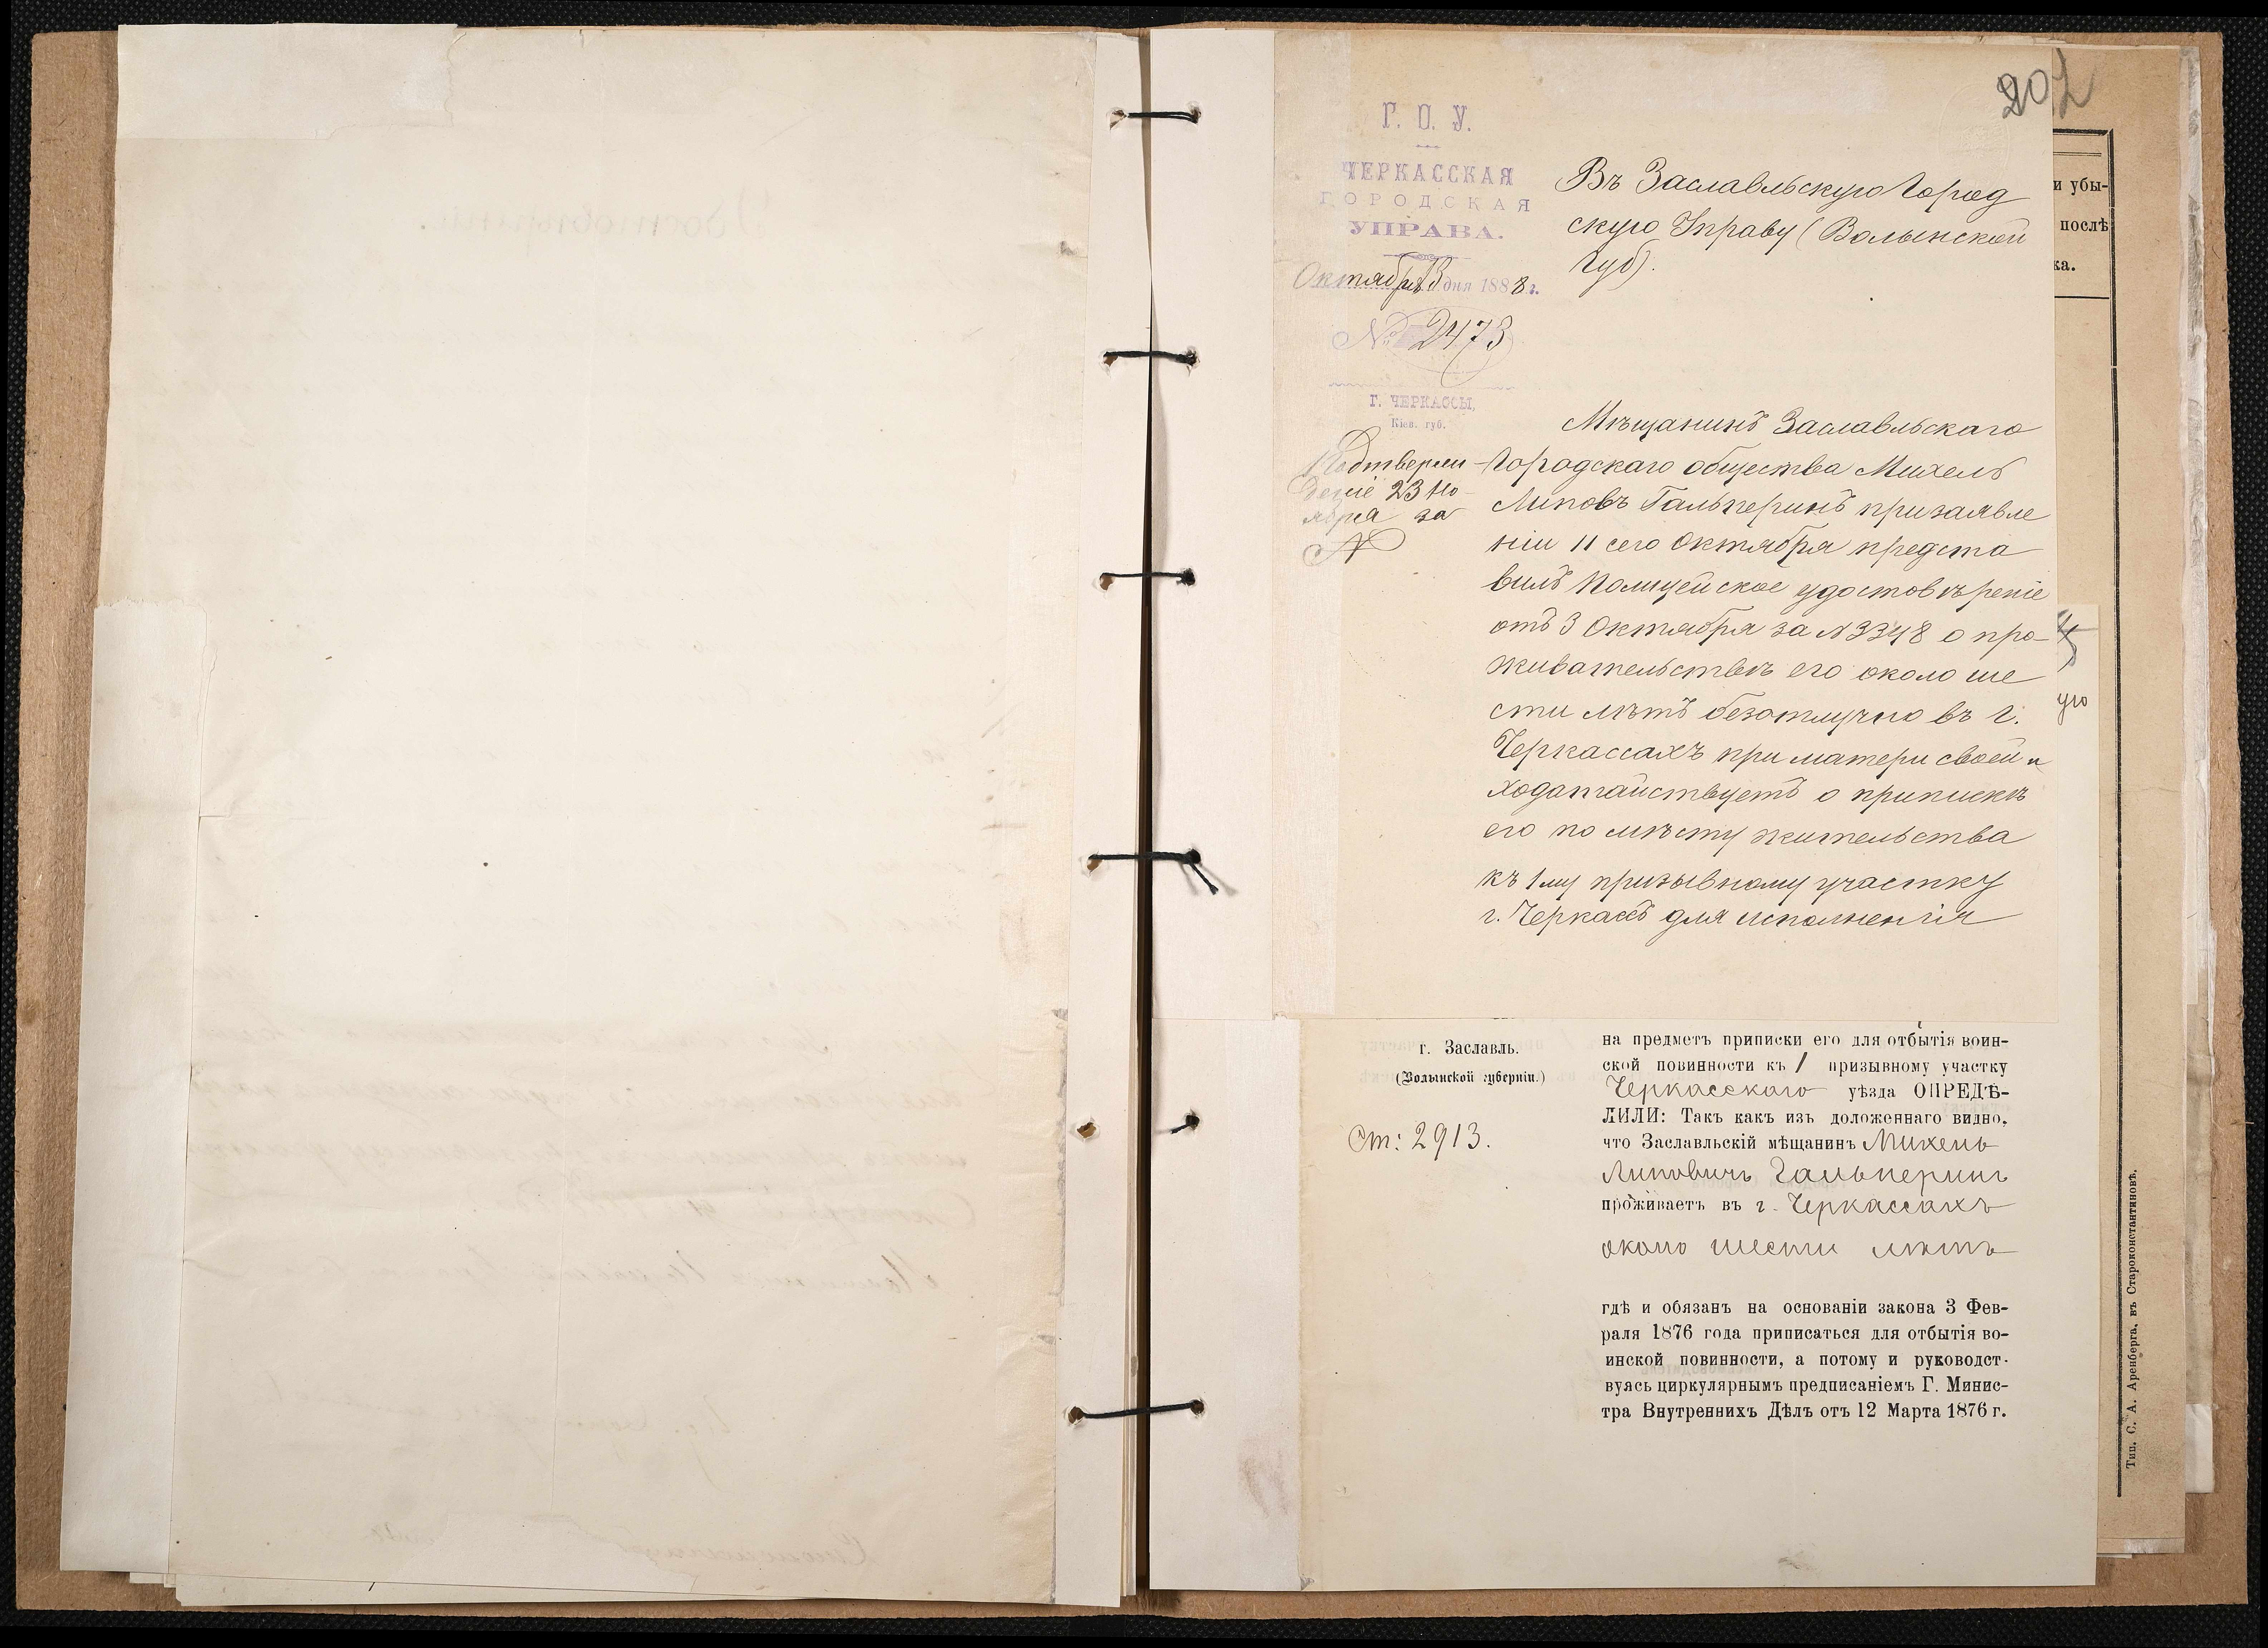 202
Г. О. У.
ЧЕРКАССКАЯ
ГОРОДСКАЯ
УПРАВА.
Октября 13 дня 1888 г.
№ 2473
Г. ЧЕРКАССЫ,
Кіев. губ.
Въ Заславльскую Город
скую Управу (Волынской
Губ).
Подтверж
деніе 23 Но-
ября за
№
Мѣщанинъ Заславльскаго
Городскаго общества Михель
Липовъ Гальперинъ при заявле
ніи 11 сего Октября предста
вилъ Полицейское удостовѣреніе
отъ 3 Октября за № 3348 о про-
живательствѣ его около ше
сти лѣтъ безотлучно въ г.
Черкассахъ при матери своей и
ходатайствуетъ о припискѣ
его по мѣсту жительства
къ 1му призывному участку
г. Черкассъ для исполненія
г. Заславль.
(Волынской губерніи.)
Ст: 2913.
на предметъ приписки его для отбытія воин-
ской повинности къ 1 призывному участку
Черкасскаго уѣзда ОПРЕДѢ-
ЛИЛИ: Такъ какъ изъ доложеннаго видно,
что Заславльскій мѣщанинъ Михель
Липовичъ Гальперинъ
проживаетъ въ г. Черкассахъ
около шести лѣтъ
гдѣ и обязанъ на основаніи закона 3 Фев-
раля 1876 года приписаться для отбытія во-
инской повинности, а потому и руководст-
вуясь циркулярнымъ предписаніемъ Г. Минис-
тра Внутреннихъ Дѣлъ отъ 12 Марта 1876 г.
и убы-
послѣ
ка.
ую
Тип. С. А. Аренберга, въ Староконстантиновѣ.